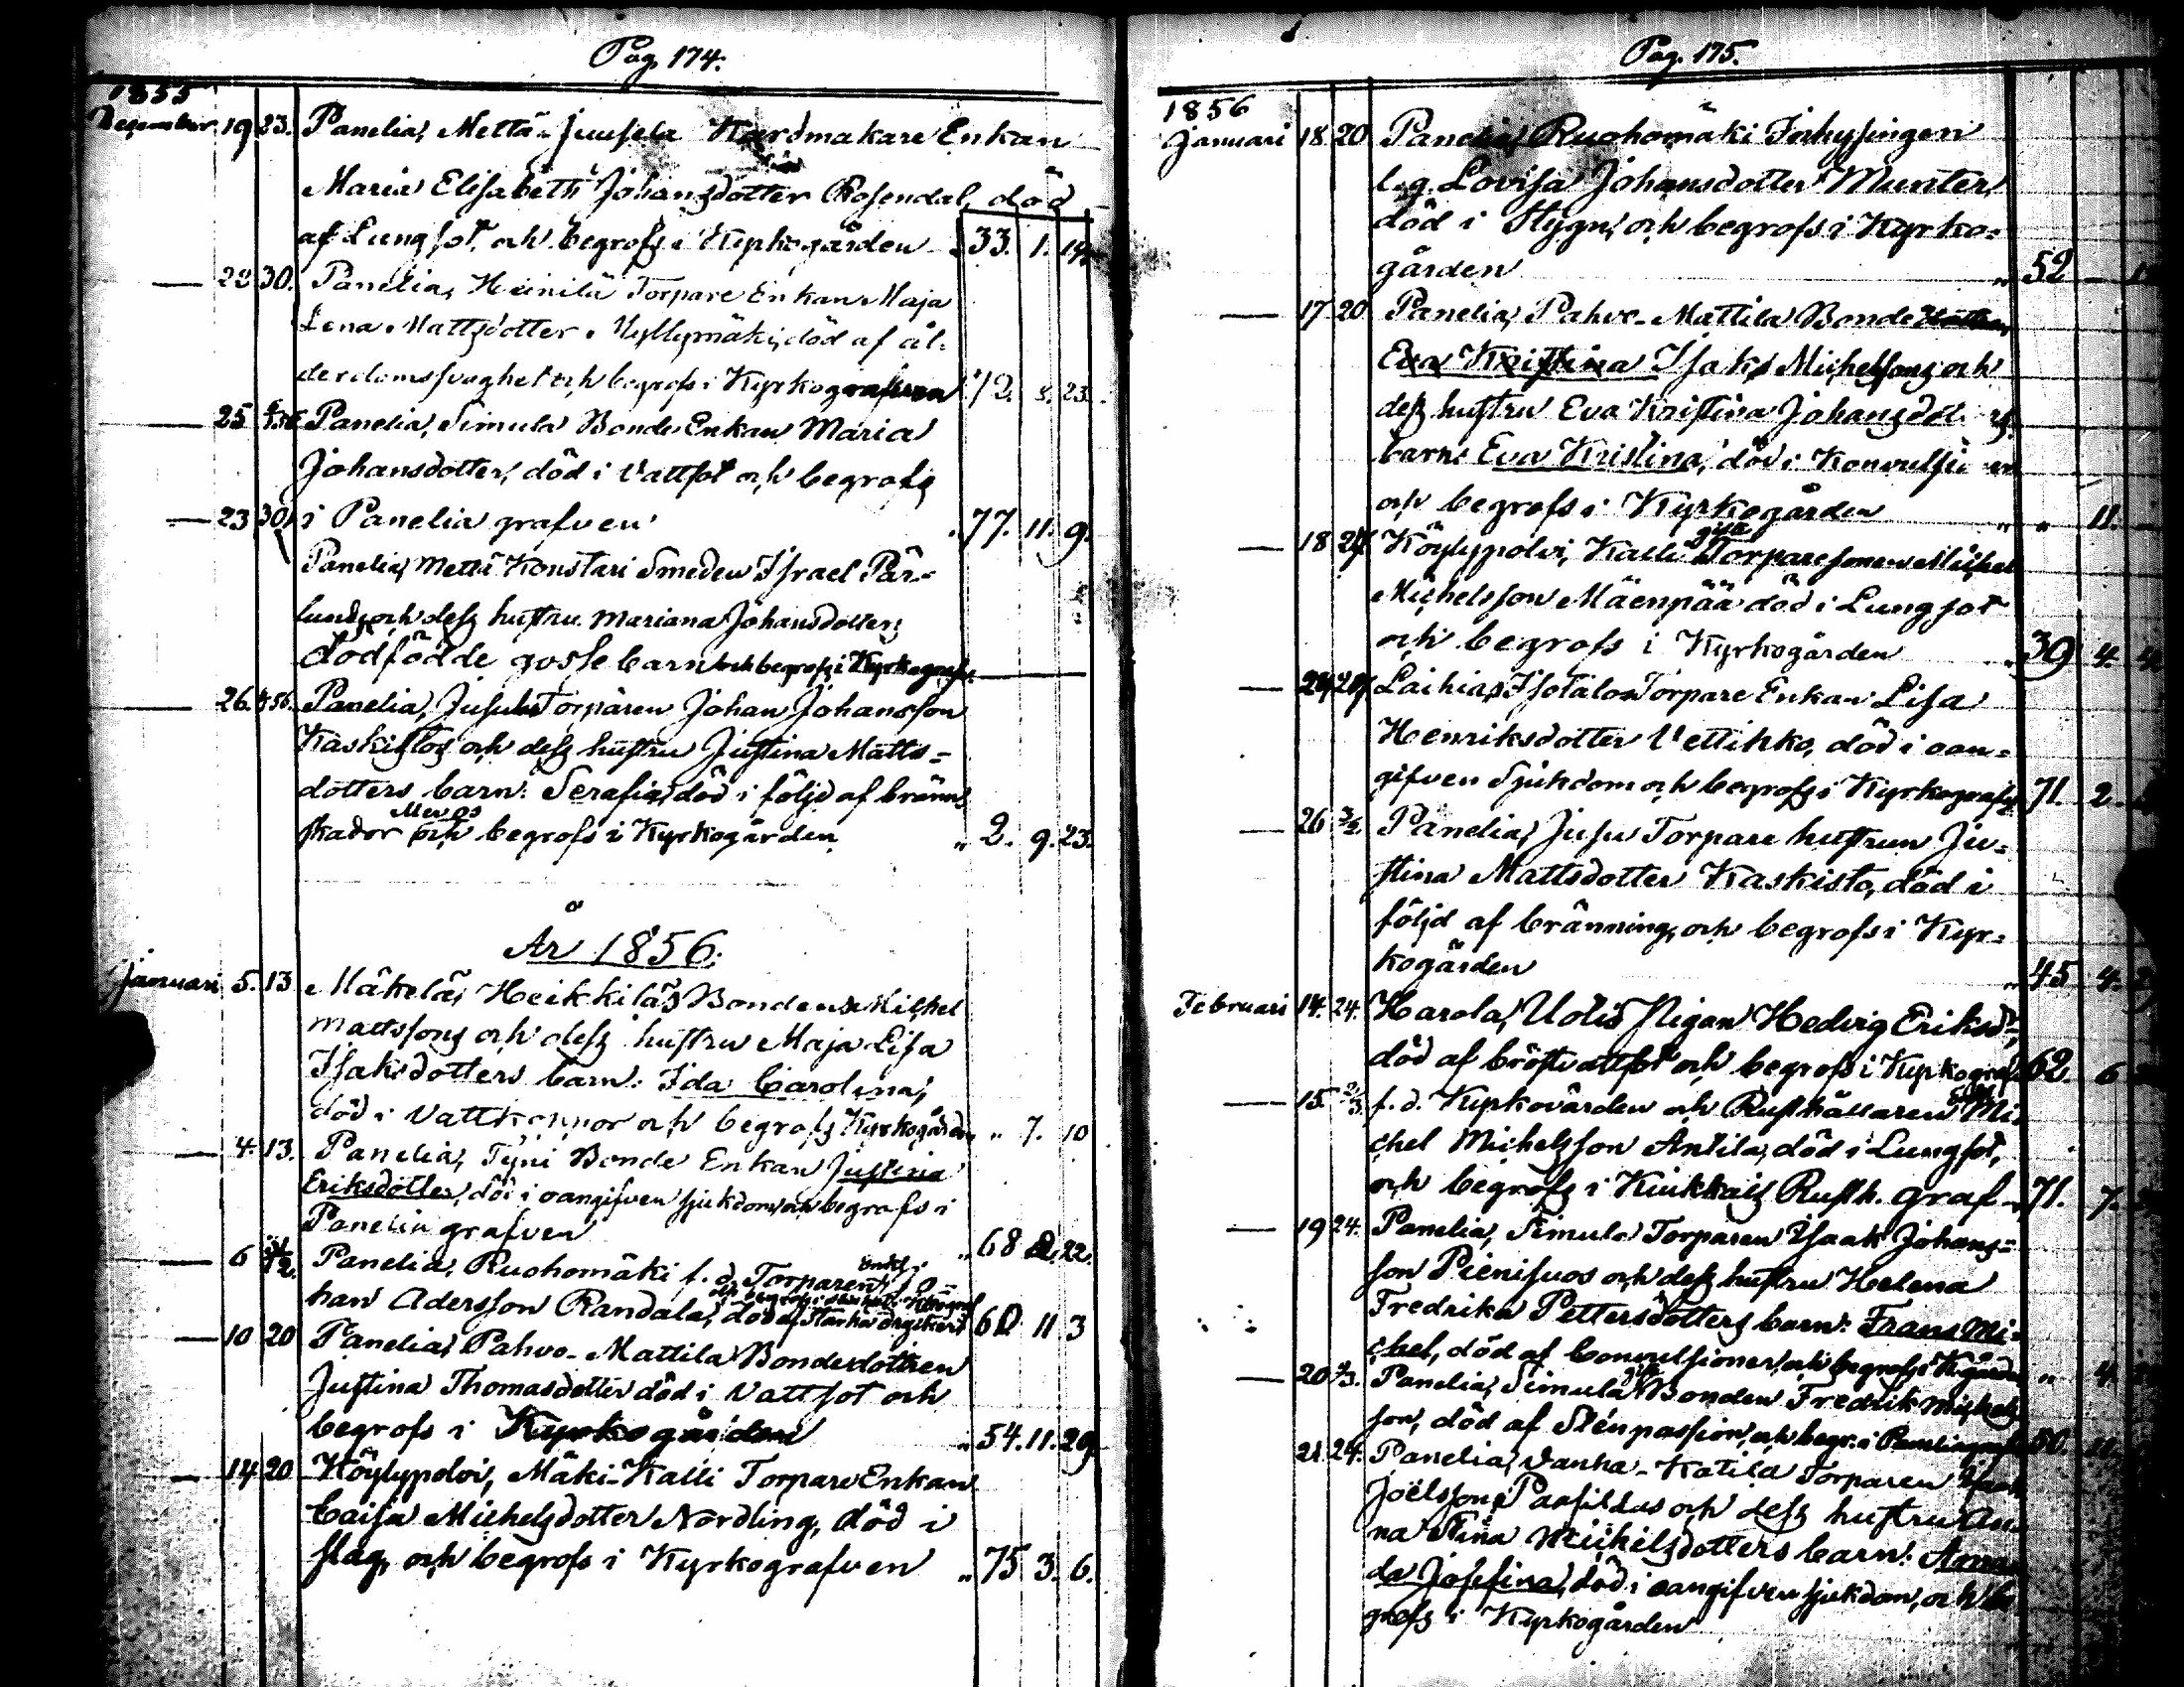 Pag. 174.
1855
December 19 23. Panelia, Mettä-Juusela Kardmakare Enkan
Maria Elisabeth Johansdotter Rosendal, död
af Lungsot, och begrofs i Kyrkogården 33. 1. 14
— 28 30. Panelia, Heinilä Torpare Enkan Maja
Lena Mattsdotter Kyllymäki, död af ål-
derdomssvaghet och begrofs i Kyrkografven 72. 8. 23.
— 25 Panelia, Simula Bonde Enkan Maria
Johansdotter, död i Vattsot och begrofs
i Panelia grafven 77. 11. 9.
— 23 30 Panelia, Mettä Konstari Smeden Israel Pär-
lunds och dess hustru Mariana Johansdotters
dödfödde gosse barn och begrofs i Kyrkograf
— 26. Panelia, Jusula Torparen Johan Johansson
Kaskistos och dess hustru Justina Matts-
dotters barn: Serafia, död i följd af bränn
skador och begrofs i Kyrkogården „ 2. 9. 23.
År 1856.
Januari 5. 13 Mäkelä, Heikkiläs Bondens Michel
Mattssons och dess hustru Maja Lisa
Isaksdotters barn: Ida Carolina,
död i Vattkoppor och begrofs Kyrkogården „ 7. 10
— 4. 13. Panelia, Tyni Bonde Enkan Justina
Eriksdotter, död i oangifven sjukdom, och begrofs i
Panelia grafven „ 68 2. 22.
— 6 Panelia, Ruohomäki f. d. Torparen Enkl. Jo-
han Adersson Randala, död af starka drycker 60 11 3
— 10 20 Panelia, Pahvo-Mattila Bondedottren
Justina Thomasdotter död i Vattsot och
begrofs i Kyrkogården „ 54. 11. 29
— 14 20 Köylypolvi, Mäki-Kalli Torpare Enkan
Caisa Michelsdotter Nordling, död i
slag, och begrofs i Kyrkografven „ 75 3. 6.
Pag. 175.
1856
Januari 18 20 Panelia, Ruohomäki Inhysingen
l. q. Lovisa Johansdotter Munter,
död i Stygn, och begrofs i Kyrko-
gården „ 52
— 17 20 Panelia, Pahvo-Mattila Bonde
Eva Kristina Isaks Michelssons och
dess hustru Eva Kristina Johansdotters
barn: Eva Kristina, död i Konvulsioner
och begrofs i Kyrkogården „ „ 11.
— 18 27 Köylypolvi, Kalli Torparesonen Michel
Michelsson Mäenpää död i Lungsot
och begrofs i Kyrkogården „ 39 4.
— 24 27 Laihia, Isotalo Torpare Enkan Lisa
Henriksdotter Vettikko, död i oan-
gifven Sjukdom och begrofs i Kyrkografven 71. 2.
— 26 3/2. Panelia, Jusu Torpare hustrun Ju-
stina Mattsdotter Kaskisto, död i
följd af bränning, och begrofs i Kyr-
kogården „ 45 4.
Februari 14. 24. Harola, Uotis Pigan Hedvig Eriksdr,
död af bröstvattsot och begrofs i Kyrkograf 62. 6
— 15. 2/3 f. d. Kyrkovärden och Rusthållaren Mi-
chel Michelsson Antila, död i Lungsot,
och begrofs i Kuikkals Rusth. graf 71. 7.
— 19 24. Panelia, Simula Torparen Isaak Johans-
son Pienisuos och dess hustru Helena
Fredrika Pettersdotters barn: Frans Mi-
chel, död af Convulsioner, och begrofs i K:gården „ 4.
— 20 Panelia, Simula Bonden Fredrik Michels
son, död af Stenpassion, och begr. i Paneliagraf
21 24. Panelia, Vanha-Katila Torparen Isak
Joëlsson och dess hustru An-
na Stina Michelsdotters barn: Aman-
da Josefina, död i oangifven sjukdom, och be-
grofs i Kyrkogården